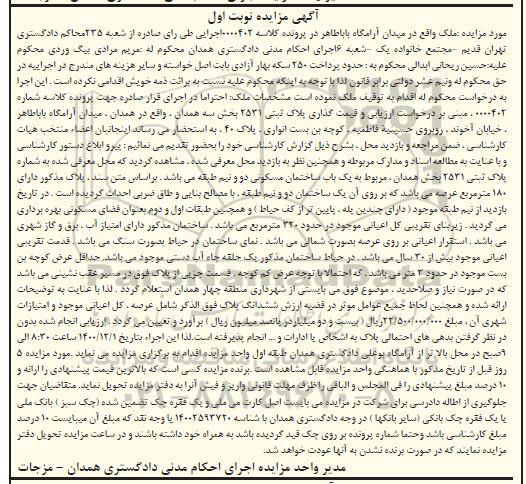 آگهی مزایده نوبت اول
مورد مزایده :ملک واقع در میدان آرامگاه باباطاهر در پرونده کلاسه ۰۰۰۰۴۰۲اجرایی طی رای صادره از شعبه ۲۳۵محاکم دادگستری
تهران قدیم -مجتمع خانواده یک -شعبه ۶اجرای احکام مدنی دادگستری همدان محکوم له :مریم مرادی بیگ وردی محکوم
علیه:حسین ریحانی ابدالی محکوم به : حدود پرداخت ۲۵۰ سکه بهار آزادی بابت اصل خواسته و سایر هزینه های مندرج در اجراییه در
حق محکوم له ونیم عشر دولتی برابر قانون لذا با توجه به اینکه محکوم علیه نسبت به برائت ذمه خویش اقدامی نکرده است . این اجرا
به درخواست محکوم له اقدام به توقیف ملک نموده است مشخصات ملک: احتراما در اجرای قرار صادره جهت پرونده کلاسه شماره
۰۰۰۰۴۰۲ ، مبنی بر درخواست ارزیابی و قیمت گذاری پلاک ثبتی ۲۵۳۱ بخش سه همدان . واقع در همدان ، میدان آرامگاه باباطاهر
، خیابان آخوند ، روبروی حسینیه فاطمیه ، کوچه بن بست انواری ، پلاک ۴۰ ، به استحضار می رساند اینجانبان اعضاء منتخب هیات
کارشناسی ، ضمن مراجعه و بازدید محل ، بشرح ذیل گزارش کارشناسی خود را بحضور تقدیم می نمائیم : پیرو ابلاغ دستور کارشناسی
و با عنایت به مطالعه اسناد و مدارک مربوطه و همچنین نظر به بازدید محل معرفی شده ، مشاهده گردید که محل معرفی شده به شماره
پلاک ثبتی ۲۵۳۱ بخش همدان ، مربوط به یک باب ساختمان مسکونی دو و نیم طبقه می باشد . براساس متن سند ، پلاک مذکور دارای
۱۸۰ مترمربع عرصه می باشد که بر روی آن یک ساختمان دو و نیم طبقه ، با مصالح بنایی و طاق ضربی احداث گردیده است . در تاریخ
بازدید از نیم طبقه موجود ( دارای چندین پله ، پایین تر از کف حیاط ) و همچنین طبقات اول و دوم بعنوان فضای مسکونی بهره برداری
می گردید . زیربنای تقریبی کل اعیانی موجود در حدود ۳۲۰ مترمربع می باشد . ساختمان مذکور دارای امتیاز آب ، برق و گاز شهری
می باشد . استقرار اعیانی بر روی عرصه بصورت شمالی می باشد . نمای ساختمان در حیاط بصورت سنگ می باشد . قدمت تقریبی
اعیانی موجود بیش از ۳۰ سال می باشد . در حیاط ساختمان مذکور یک حلقه چاه آب دستی موجود می باشد. حداقل عرض کوچه بن
بست موجود در حدود ۳ متر می باشد . که احتمالا با توجه عرض کم کوچه ، قسمت جزیی از پلاک فوق در مسیر عقب نشینی می باشد
که در صورت نیاز و صلاحدید ، موضوع فوق می بایستی از شهرداری منطقه چهار همدان استعلام گردد . لذا با عنایت به توضیحات
ارائه شده و همچنین لحاظ جمیع عوامل موثر در قضیه ارزش ششدانگ پلاک فوق الذکر شامل عرصه ، کل اعیانی موجود و امتیازات
شهری آن ، مبلغ ۲۲/۵۰۰/۰۰۰/۰۰۰ریال ( بیست و دو میلیاردو پانصد میلیون ریال ) برآورد و تعیین می گردد . ارزیابی انجام شده بدون
در نظر گرفتن بدهی های احتمالی پلاک به اشخاص یا ادارات و ... انجام پذیرفته است.لذا این اجراء بتاریخ ۱۴۰۰/۱۲/۱ ساعت ۸:۳۰ الی
۹صبح در محل بالا تر از آرامگاه بوعلی دادگستری همدان طبقه اول واحد مزایده اقدام به برگزاری مزایده می نماید .مورد مزایده ۵
روز قبل از تاریخ مذکور با هماهنگی واحد مزایده قابل مشاهده است .برنده مزایده کسی است که بالاترین قیمت پیشنهادی را ارائه و
۱۰ درصد مبلغ پیشنهادی را فی المجلس و الباقی را ظرف مهلت قانونی واریز و فیش آنرا به دفتر مزایده تحویل نماید. متقاضیان جهت
جلوگیری از اطاله دادرسی برای شرکت در مزایده می بایست اصل کارت می ملی و یک فقره چک تضمین شده (چک سبز ) بانک ملی
یا یک فقره چک بانکی (سایر بانکها ) در وجه دادگستری همدان با شناسه ۱۴۰۰۲۵۹۳۷۲۰ یا وجه نقد که مبلغ آن میبایست ۱۰ درصد
مبلغ کارشناسی باشد وحتما شماره پرونده بر روی چک قید گردیده باشد به همراه خود داشته باشند و در ساعت مزایده تحویل دفتر
مزایده نمایند که در صورت برنده نشدن به آنها عودت خواهد شد.
مدیر واحد مزایده اجرای احکام مدنی دادگستری همدان - مزجات